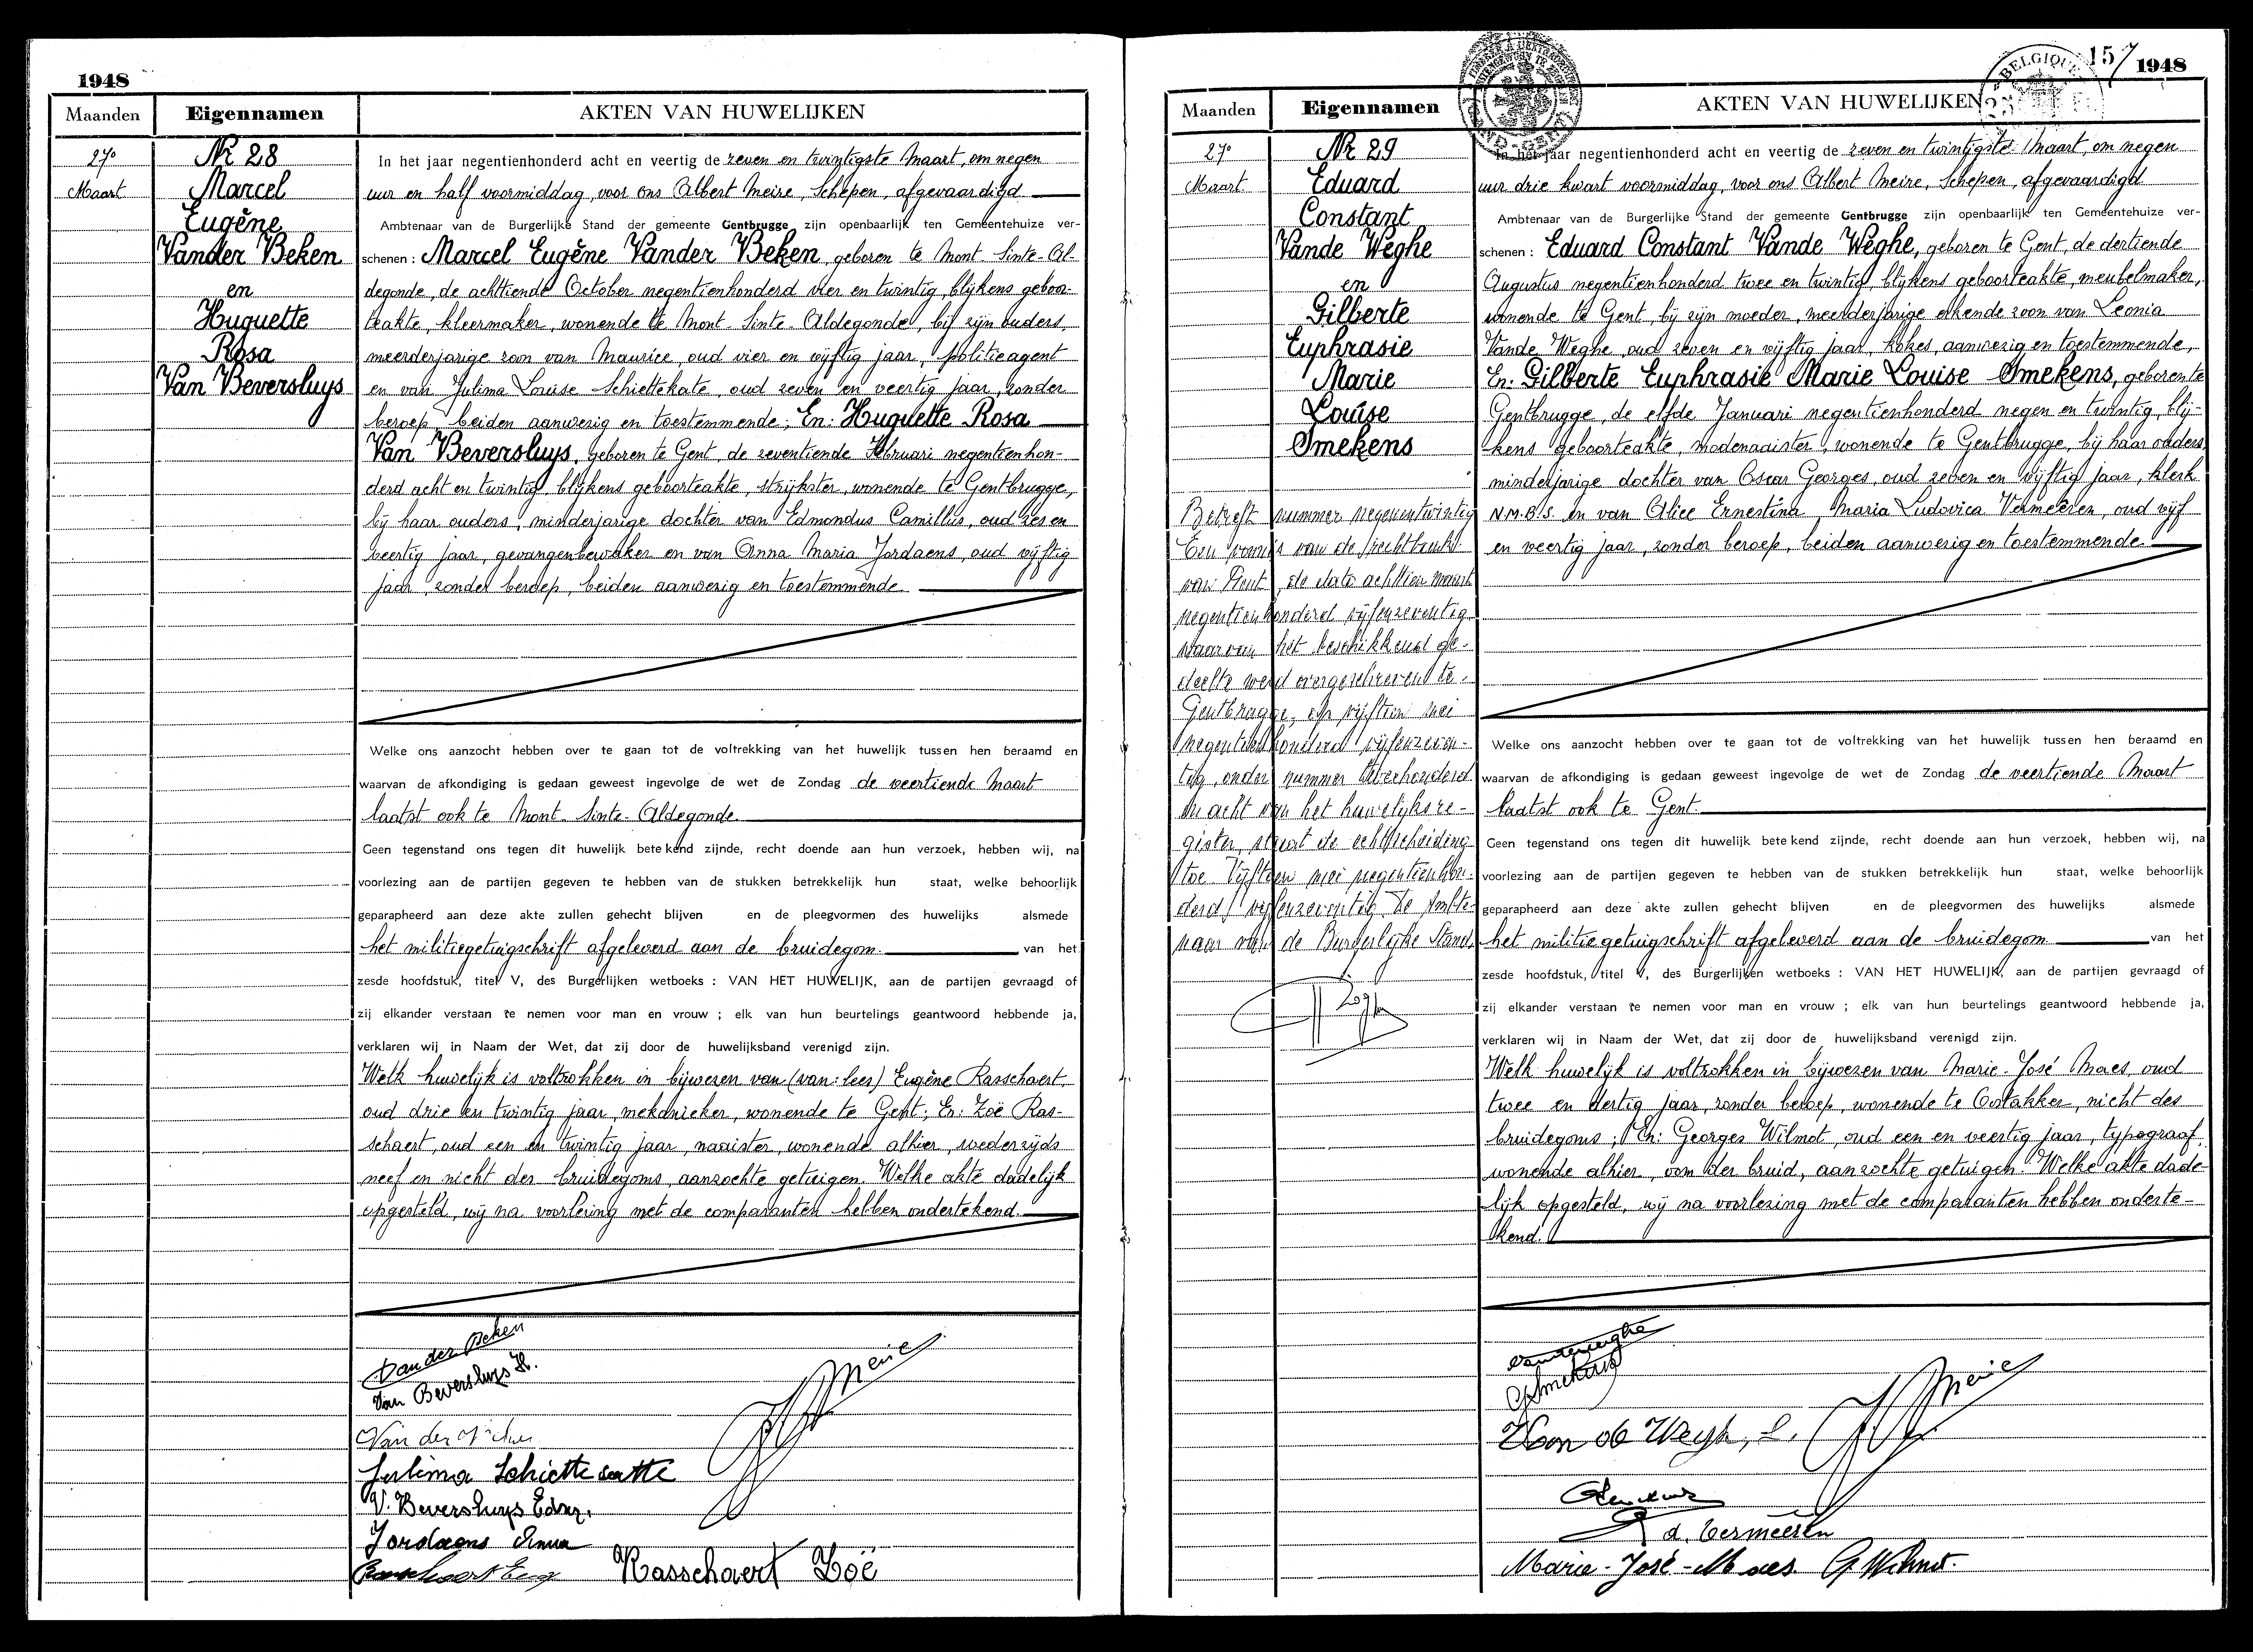 1948
Maanden Eigennamen AKTEN VAN HUWELIJKEN
27e
Maart
Nr 28
Marcel
Eugène
Vander Beken
en
Huguette
Rosa
Van Beversluys
In het jaar negentienhonderd acht en veertig de zeven en twintigste Maart, om negen
uur en half voormiddag, voor ons Albert Meire, Schepen, afgevaardigd
Ambtenaar van de Burgerlijke Stand der gemeente Gentbrugge zijn openbaarlijk ten Gemeentehuize ver-
schenen : Marcel Eugène Vander Beken, geboren te Mont Sinte-Al-
degonde, de achttiende October negentienhonderd vier en twintig, blijkens geboor-
teakte, kleermaker, wonende te Mont-Sinte-Aldegonde, bij zijn ouders,
meerderjarige zoon van Maurice, oud vier en vijftig jaar, politieagent
en van Julima Louise Schiettekate, oud zeven en veertig jaar, zonder
beroep, beiden aanwezig en toestemmende; En: Huguette Rosa
Van Beversluys, geboren te Gent, de zeventiende Februari negentienhon-
derd acht en twintig, blijkens geboorteakte, strijkster, wonende te Gentbrugge,
bij haar ouders, minderjarige dochter van Edmondus Camillus, oud zes en
veertig jaar, gevangenbewaker en van Anna Maria Jordaens, oud vijftig
jaar, zonder beroep, beiden aanwezig en toestemmende
Welke ons aanzocht hebben over te gaan tot de voltrekking van het huwelijk tussen hen beraamd en
waarvan de afkondiging is gedaan geweest ingevolge de wet de Zondag de veertiende Maart
laatst ook te Mont-Sinte-Aldegonde.
Geen tegenstand ons tegen dit huwelijk betekend zijnde, recht doende aan hun verzoek, hebben wij, na
voorlezing aan de partijen gegeven te hebben van de stukken betrekkelijk hun staat, welke behoorlijk
geparapheerd aan deze akte zullen gehecht blijven en de pleegvormen des huwelijks alsmede
het militiegetuigschrift afgeleverd aan de bruidegom. van het
zesde hoofdstuk, titel V, des Burgerlijken wetboeks : VAN HET HUWELIJK, aan de partijen gevraagd of
zij elkander verstaan te nemen voor man en vrouw ; elk van hun beurtelings geantwoord hebbende ja,
verklaren wij in Naam der Wet, dat zij door de huwelijksband verenigd zijn.
Welk huwelijk is voltrokken in bijwezen van (van: lees) Eugène Rasschaert,
oud drie en twintig jaar, mekanieker, wonende te Gent; En: Zoë Ras-
schaert, oud een en twintig jaar, naaister, wonende alhier, wederzijds
neef en nicht des bruidegoms, aanzochte getuigen. Welke akte dadelijk
opgesteld, wij na voorlezing met de comparanten hebben ondertekend.
Van der Beken
Van Beversluys H.
Meire
Julima Schiettecatte
V. Beversluys Edm.
Jordaens Anna
Rasschaert Eug Rasschaert Zoë
157 1948
BELGIQUE
Maanden Eigennamen AKTEN VAN HUWELIJKEN
27e
Maart
Nr 29
Eduard
Constant
Vande Weghe
en
Gilberte
Euphrasie
Marie
Louise
Smekens
Betreft nummer negenentwintig
Een vonnis van de rechtbank
van Gent, de dato achttien maart
negentienhonderd vijfenzeventig
waarvan het beschikkend ge-
deelte werd overgeschreven te
Gentbrugge, op vijftien mei
negentienhonderd vijfenzeven-
tig, onder nummer tweehonderd
en acht van het huwelijksre-
gister, staat de echtscheiding
toe. Vijftien mei negentienhon-
derd vijfenzeventig. De Ambte-
naar van de Burgerlijke Stand,
In het jaar negentienhonderd acht en veertig de zeven en twintigste Maart, om negen
uur drie kwart voormiddag, voor ons Albert Meire, Schepen, afgevaardigd
Ambtenaar van de Burgerlijke Stand der gemeente Gentbrugge zijn openbaarlijk ten Gemeentehuize ver-
schenen : Eduard Constant Vande Weghe, geboren te Gent, de dertiende
Augustus negentienhonderd twee en twintig, blijkens geboorteakte, meubelmaker,
wonende te Gent, bij zijn moeder, meerderjarige erkende zoon van Leonia
Vande Weghe, oud zeven en vijftig jaar, kokes, aanwezig en toestemmende,
En: Gilberte Euphrasie Marie Louise Smekens, geboren te
Gentbrugge, de elfde Januari negentienhonderd negen en twintig, blij-
kens geboorteakte, modenaaister, wonende te Gentbrugge, bij haar ouders
minderjarige dochter van Oscar Georges, oud zeven en vijftig jaar, klerk
N.M.B.S. en van Alice Ernestina Maria Ludovica Vermeeren, oud vijf
en veertig jaar, zonder beroep, beiden aanwezig en toestemmende
Welke ons aanzocht hebben over te gaan tot de voltrekking van het huwelijk tussen hen beraamd en
waarvan de afkondiging is gedaan geweest ingevolge de wet de Zondag de veertiende Maart
laatst ook te Gent
Geen tegenstand ons tegen dit huwelijk betekend zijnde, recht doende aan hun verzoek, hebben wij, na
voorlezing aan de partijen gegeven te hebben van de stukken betrekkelijk hun staat, welke behoorlijk
geparapheerd aan deze akte zullen gehecht blijven en de pleegvormen des huwelijks alsmede
het militiegetuigschrift afgeleverd aan de bruidegom van het
zesde hoofdstuk, titel V, des Burgerlijken wetboeks : VAN HET HUWELIJK, aan de partijen gevraagd of
zij elkander verstaan te nemen voor man en vrouw ; elk van hun beurtelings geantwoord hebbende ja,
verklaren wij in Naam der Wet, dat zij door de huwelijksband verenigd zijn.
Welk huwelijk is voltrokken in bijwezen van Marie-José Maes, oud
twee en dertig jaar, zonder beroep, wonende te Oostakker, nicht des
bruidegoms; En: Georges Wilmot, oud een en veertig jaar, typograaf,
wonende alhier, oom der bruid, aanzochte getuigen. Welke akte dade-
lijk opgesteld, wij na voorlezing met de comparanten hebben onderte-
kend.
Vandeweghe
G Smekens
Meire
Van de Weghe, L.
a. Vermeeren
Marie-José-Maes G. Wilmot.